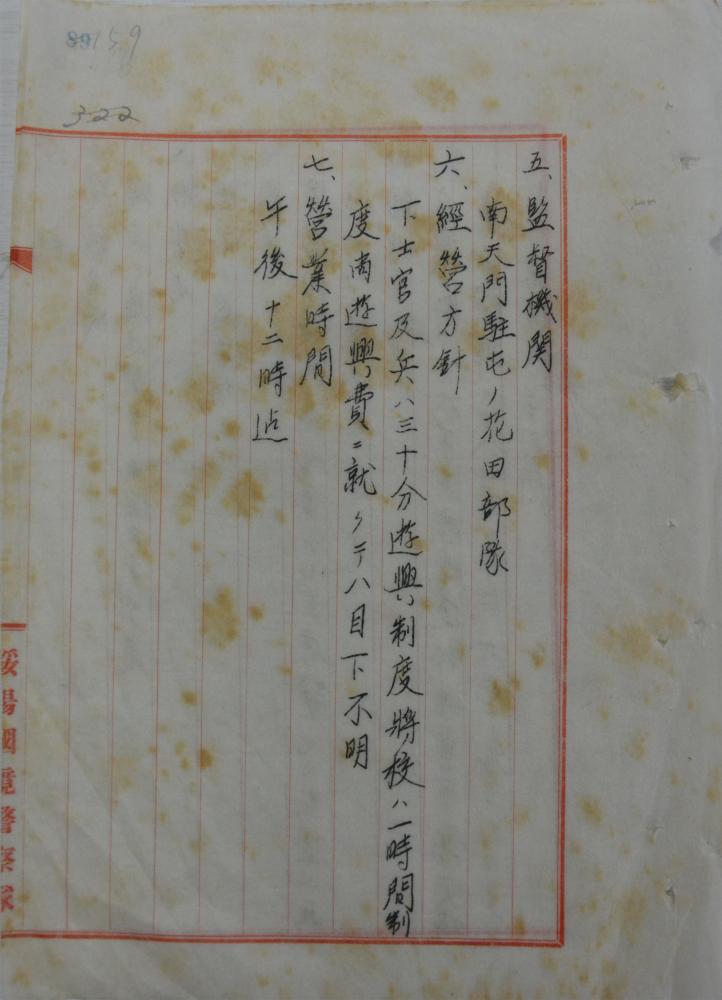 89
159
322
五、監督機関
南天門駐屯ノ花田部隊
六、經營方針
下士官及兵ハ三十分遊興制度將校ハ一時間制
度尚遊興費ニ就テハ目下不明
七、營業時間
午後十二時迠
綏陽國境警察隊